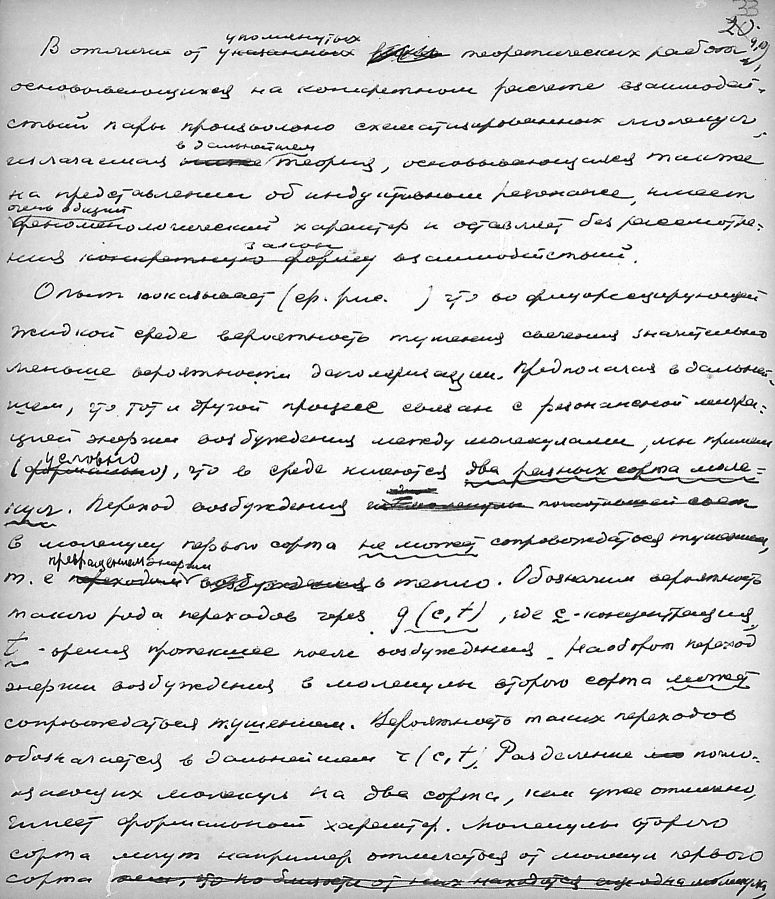 33
20.
упомянутых
В отличие от указанных теоретических работ,
основывающихся на конкретном расчете взаимодей-
ствий пары произвольно схематизированных молекул,
в дальнейшем
излагаемая ниже теория, основывающаяся также
на представлении об индуктивном резонансе, имеет
очень общий
феноменологический характер и оставляет без рассмотре-
закон
ния конкретную форму взаимодействий.
Опыт показывает (ср. рис. ) что во флуоресцирующей
жидкой среде вероятность тушения свечения значительно
меньше вероятности деполяризации. Предполагая в дальней-
шем, что тот и другой процесс связан с резонансной мигра-
цией энергии возбуждения между молекулами, мы примем
условно
(формально), что в среде имеются два разных сорта моле-
кул. Переход возбуждения молекулы поглотившей свет
в молекулу первого сорта не может сопровождаться тушением,
превращением энергии
т. е переходом возбуждения в тепло. Обозначим вероятность
такого рода переходов через g (c, t), где c - концентрация,
t - время протекшее после возбуждения. Наоборот переход
энергии возбуждения в молекулы второго сорта может
сопровождаться тушением. Вероятность таких переходов
обозначается в дальнейшем τ (c, t). Разделение погло-
щающих молекул на два сорта, как уже отмечено,
имеет формальный характер. Молекулы второго
сорта могут например отличаться от молекул первого
сорта тем, что по близости от них находится еще одна молекула,